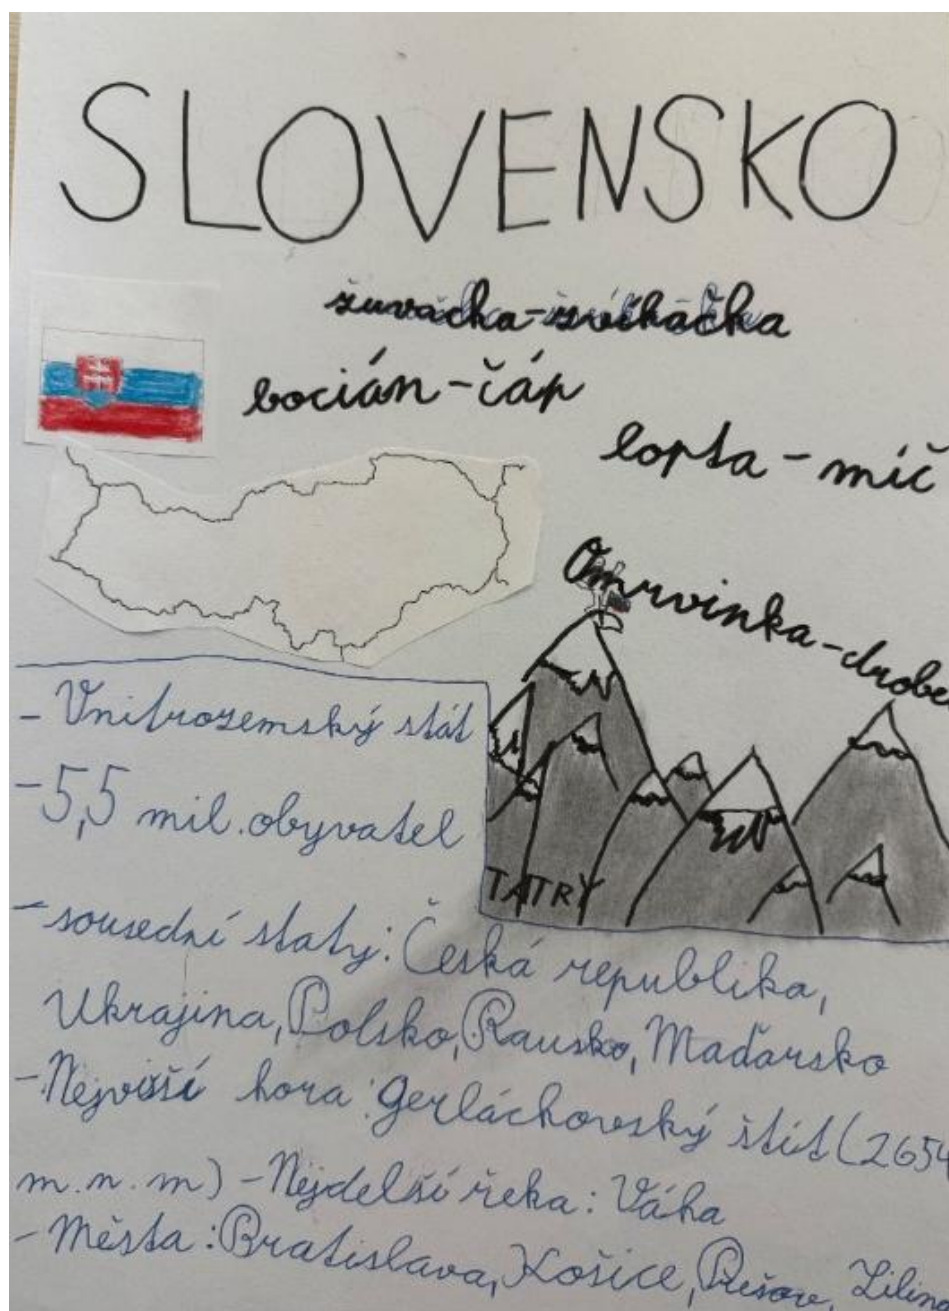 SLOVENSKO
žuvačka-žvýkačka
bocián-čáp
lopta-míč
Omrvinka-drobe
TATRY
- Vnitrozemský stát
- 5,5 mil. obyvatel
- sousední staty: Česká republika,
Ukrajina, Polsko, Rausko, Maďarsko
- Nejvišší hora: Gerláchovský štít (2654
m.n.m) - Nejdelší řeka: Váha
- Města: Bratislava, Košice, Prešov, Žilina